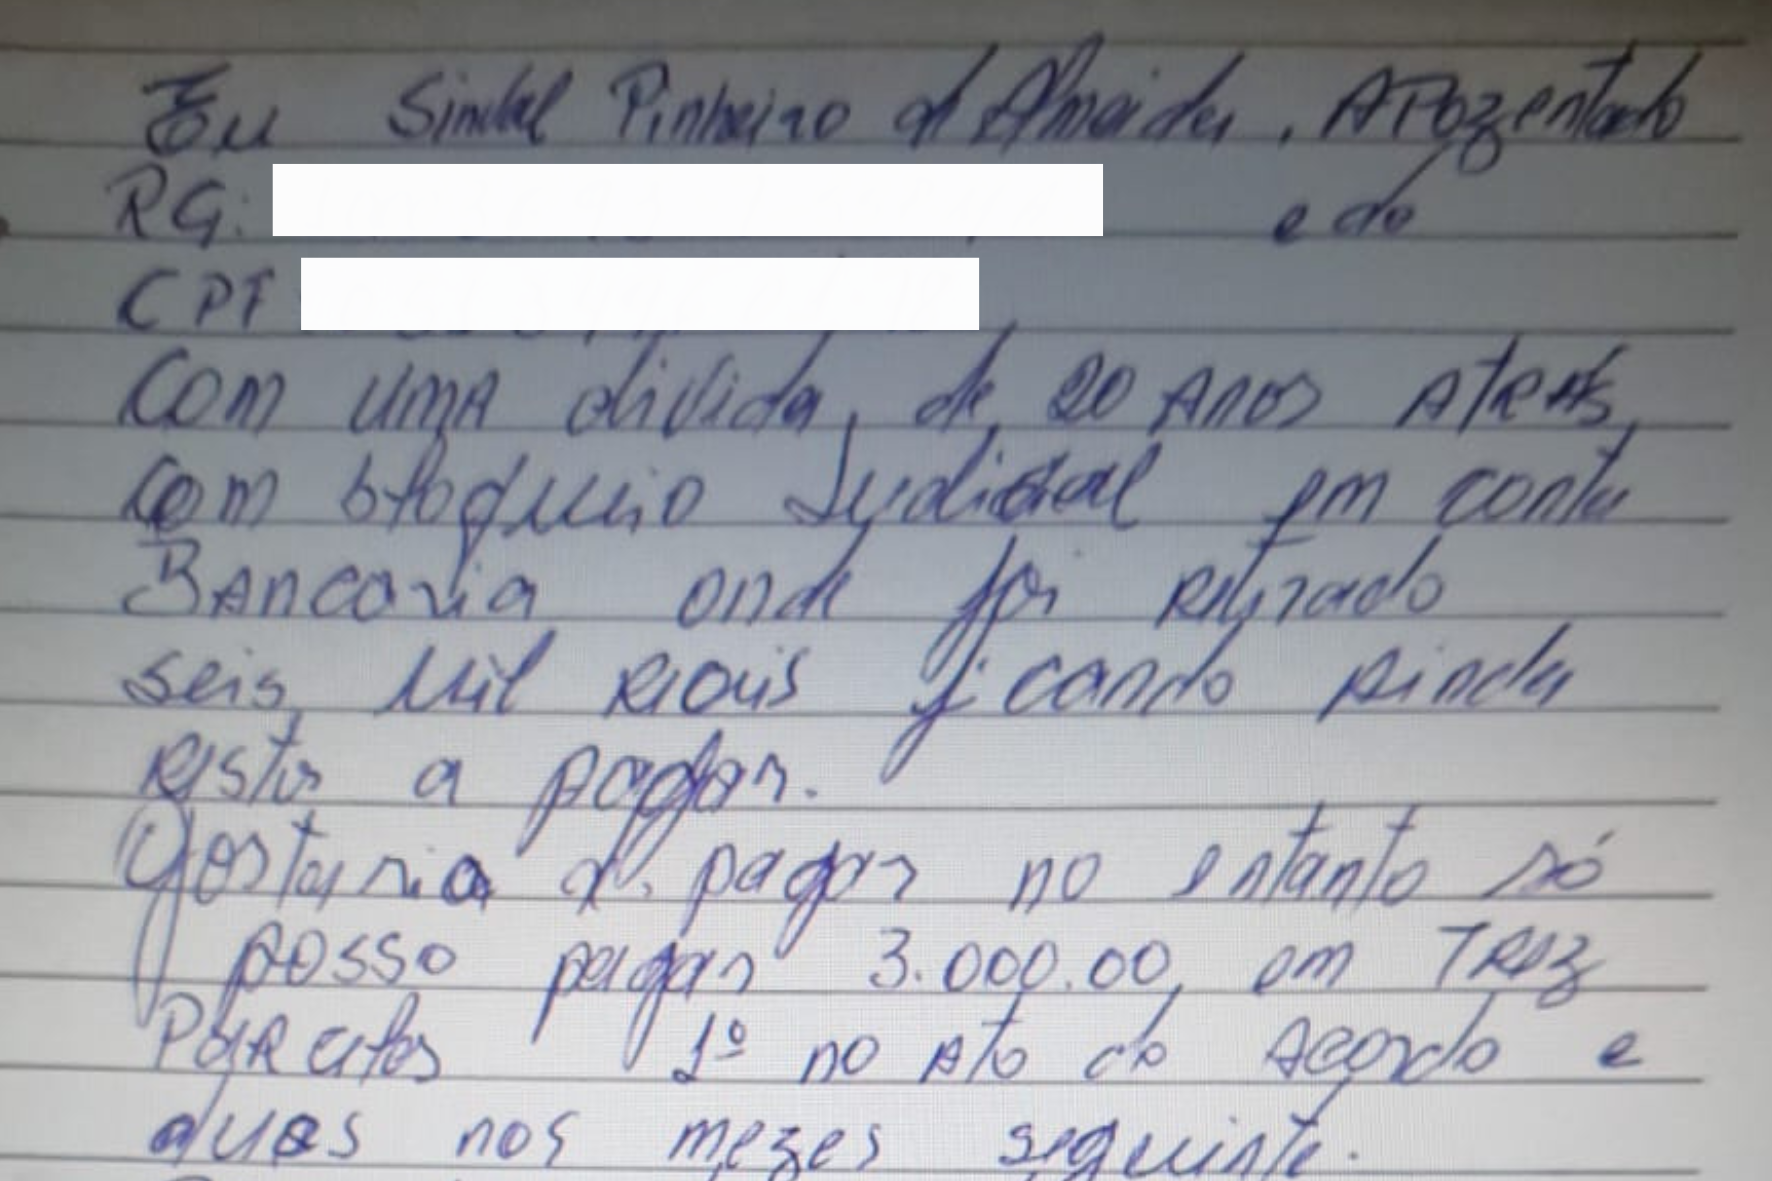 Eu Sindal Pinheiro de Almeida, APozentado
RG: e do
CPF
Com UMA divida, de 20 Anos AtRAS,
Com bloqueio Judicial em conta
BAncaria onde foi Retirado
seis, Mil Reais ficando Ainda
Resto a pagar.
Gostaria de pagar no entanto só
posso pagar 3.000.00, em TREZ
PARcelas 1º no Ato do Acordo e
duas nos mezes seguinte.